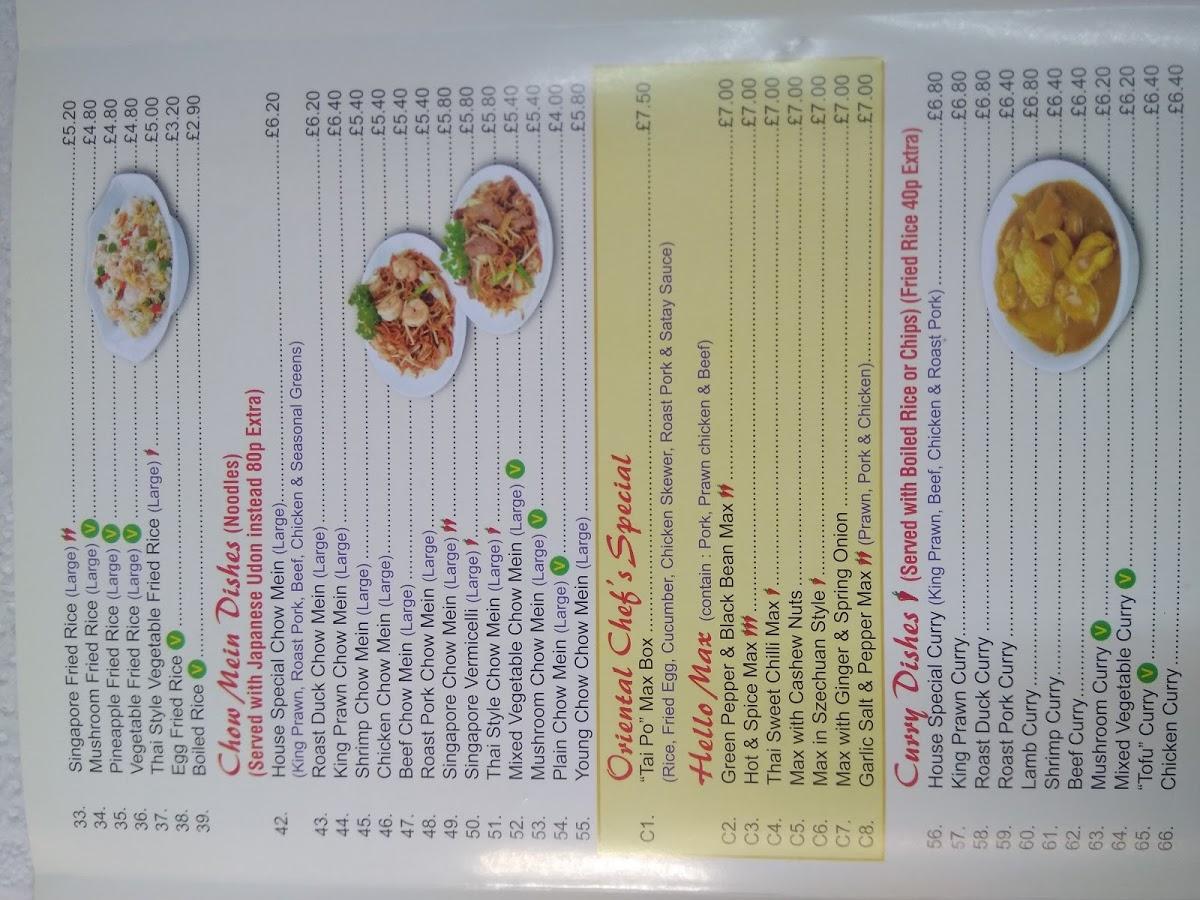 33. Singapore Fried Rice (Large) £5.20
34. Mushroom Fried Rice (Large) V £4.80
35. Pineapple Fried Rice (Large) V £4.80
36. Vegetable Fried Rice (Large) V £4.80
37. Thai Style Vegetable Fried Rice (Large) £5.00
38. Egg Fried Rice V £3.20
39. Boiled Rice V £2.90
Chow Mein Dishes (Noodles)
(Served with Japanese Udon instead 80p Extra)
42. House Special Chow Mein (Large) £6.20
(King Prawn, Roast Pork, Beef, Chicken & Seasonal Greens)
43. Roast Duck Chow Mein (Large) £6.20
44. King Prawn Chow Mein (Large) £6.40
45. Shrimp Chow Mein (Large) £5.40
46. Chicken Chow Mein (Large) £5.40
47. Beef Chow Mein (Large) £5.40
48. Roast Pork Chow Mein (Large) £5.40
49. Singapore Chow Mein (Large) £5.80
50. Singapore Vermicelli (Large) £5.80
51. Thai Style Chow Mein (Large) £5.80
52. Mixed Vegetable Chow Mein (Large) V £5.40
53. Mushroom Chow Mein (Large) V £5.40
54. Plain Chow Mein (Large) V £4.00
55. Young Chow Mein (Large) £5.80
Oriental Chef's Special
C1. "Tai Po" Max Box £7.50
(Rice, Fried Egg, Cucumber, Chicken Skewer, Roast Pork & Satay Sauce)
Hello Max (contain : Pork, Prawn chicken & Beef)
C2. Green Pepper & Black Bean Max £7.00
C3. Hot & Spice Max £7.00
C4. Thai Sweet Chilli Max £7.00
C5. Max with Cashew Nuts £7.00
C6. Max in Szechuan Style £7.00
C7. Max with Ginger & Spring Onion £7.00
C8. Garlic Salt & Pepper Max (Prawn, Pork & Chicken) £7.00
Curry Dishes (Served with Boiled Rice or Chips) (Fried Rice 40p Extra)
56. House Special Curry (King Prawn, Beef, Chicken & Roast Pork) £6.80
57. King Prawn Curry £6.80
58. Roast Duck Curry £6.80
59. Roast Pork Curry £6.40
60. Lamb Curry £6.80
61. Shrimp Curry £6.40
62. Beef Curry £6.40
63. Mushroom Curry V £6.20
64. Mixed Vegetable Curry V £6.20
65. "Tofu" Curry V £6.40
66. Chicken Curry £6.40